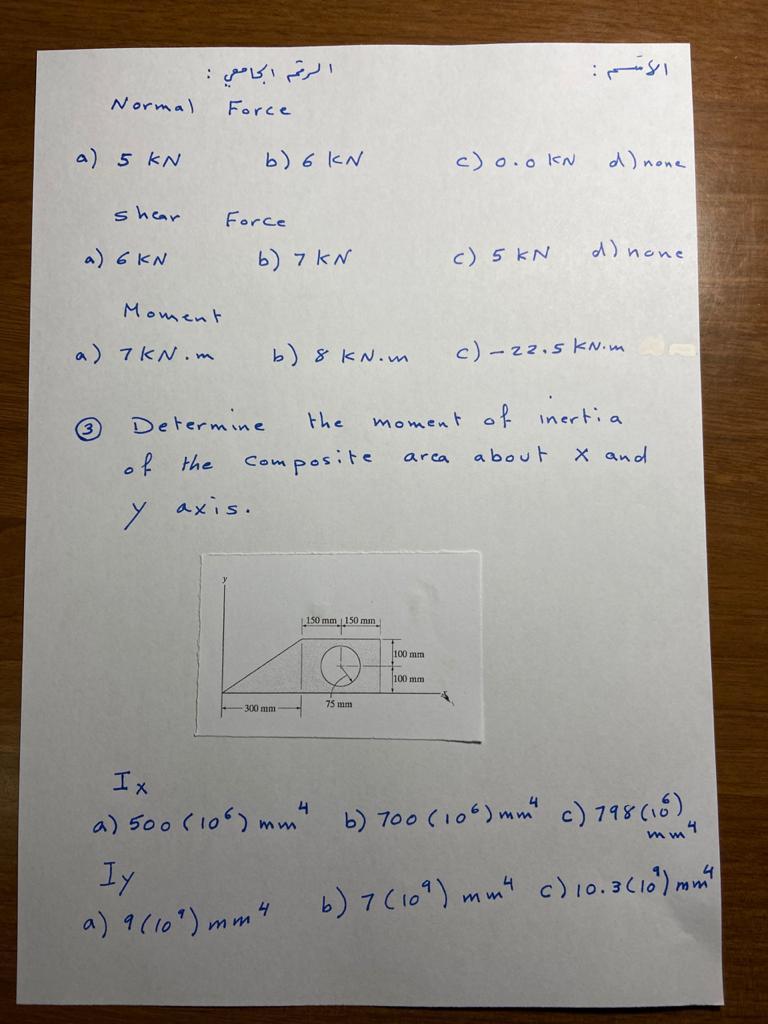 الأسم : الرقم الجامعي :
Normal Force
a) 5 KN b) 6 KN c) 0.0 KN d) none
shear Force
a) 6 KN b) 7 KN c) 5 KN d) none
Moment
a) 7 KN.m b) 8 KN.m c) -22.5 KN.m
③ Determine the moment of inertia
of the composite area about x and
y axis.
y
150 mm 150 mm
100 mm
100 mm
x
300 mm 75 mm
Ix
a) 500 (10⁶) mm⁴ b) 700 (10⁶) mm⁴ c) 798 (10⁶)
mm⁴
Iy
a) 9 (10⁹) mm⁴ b) 7 (10⁹) mm⁴ c) 10.3 (10⁹) mm⁴